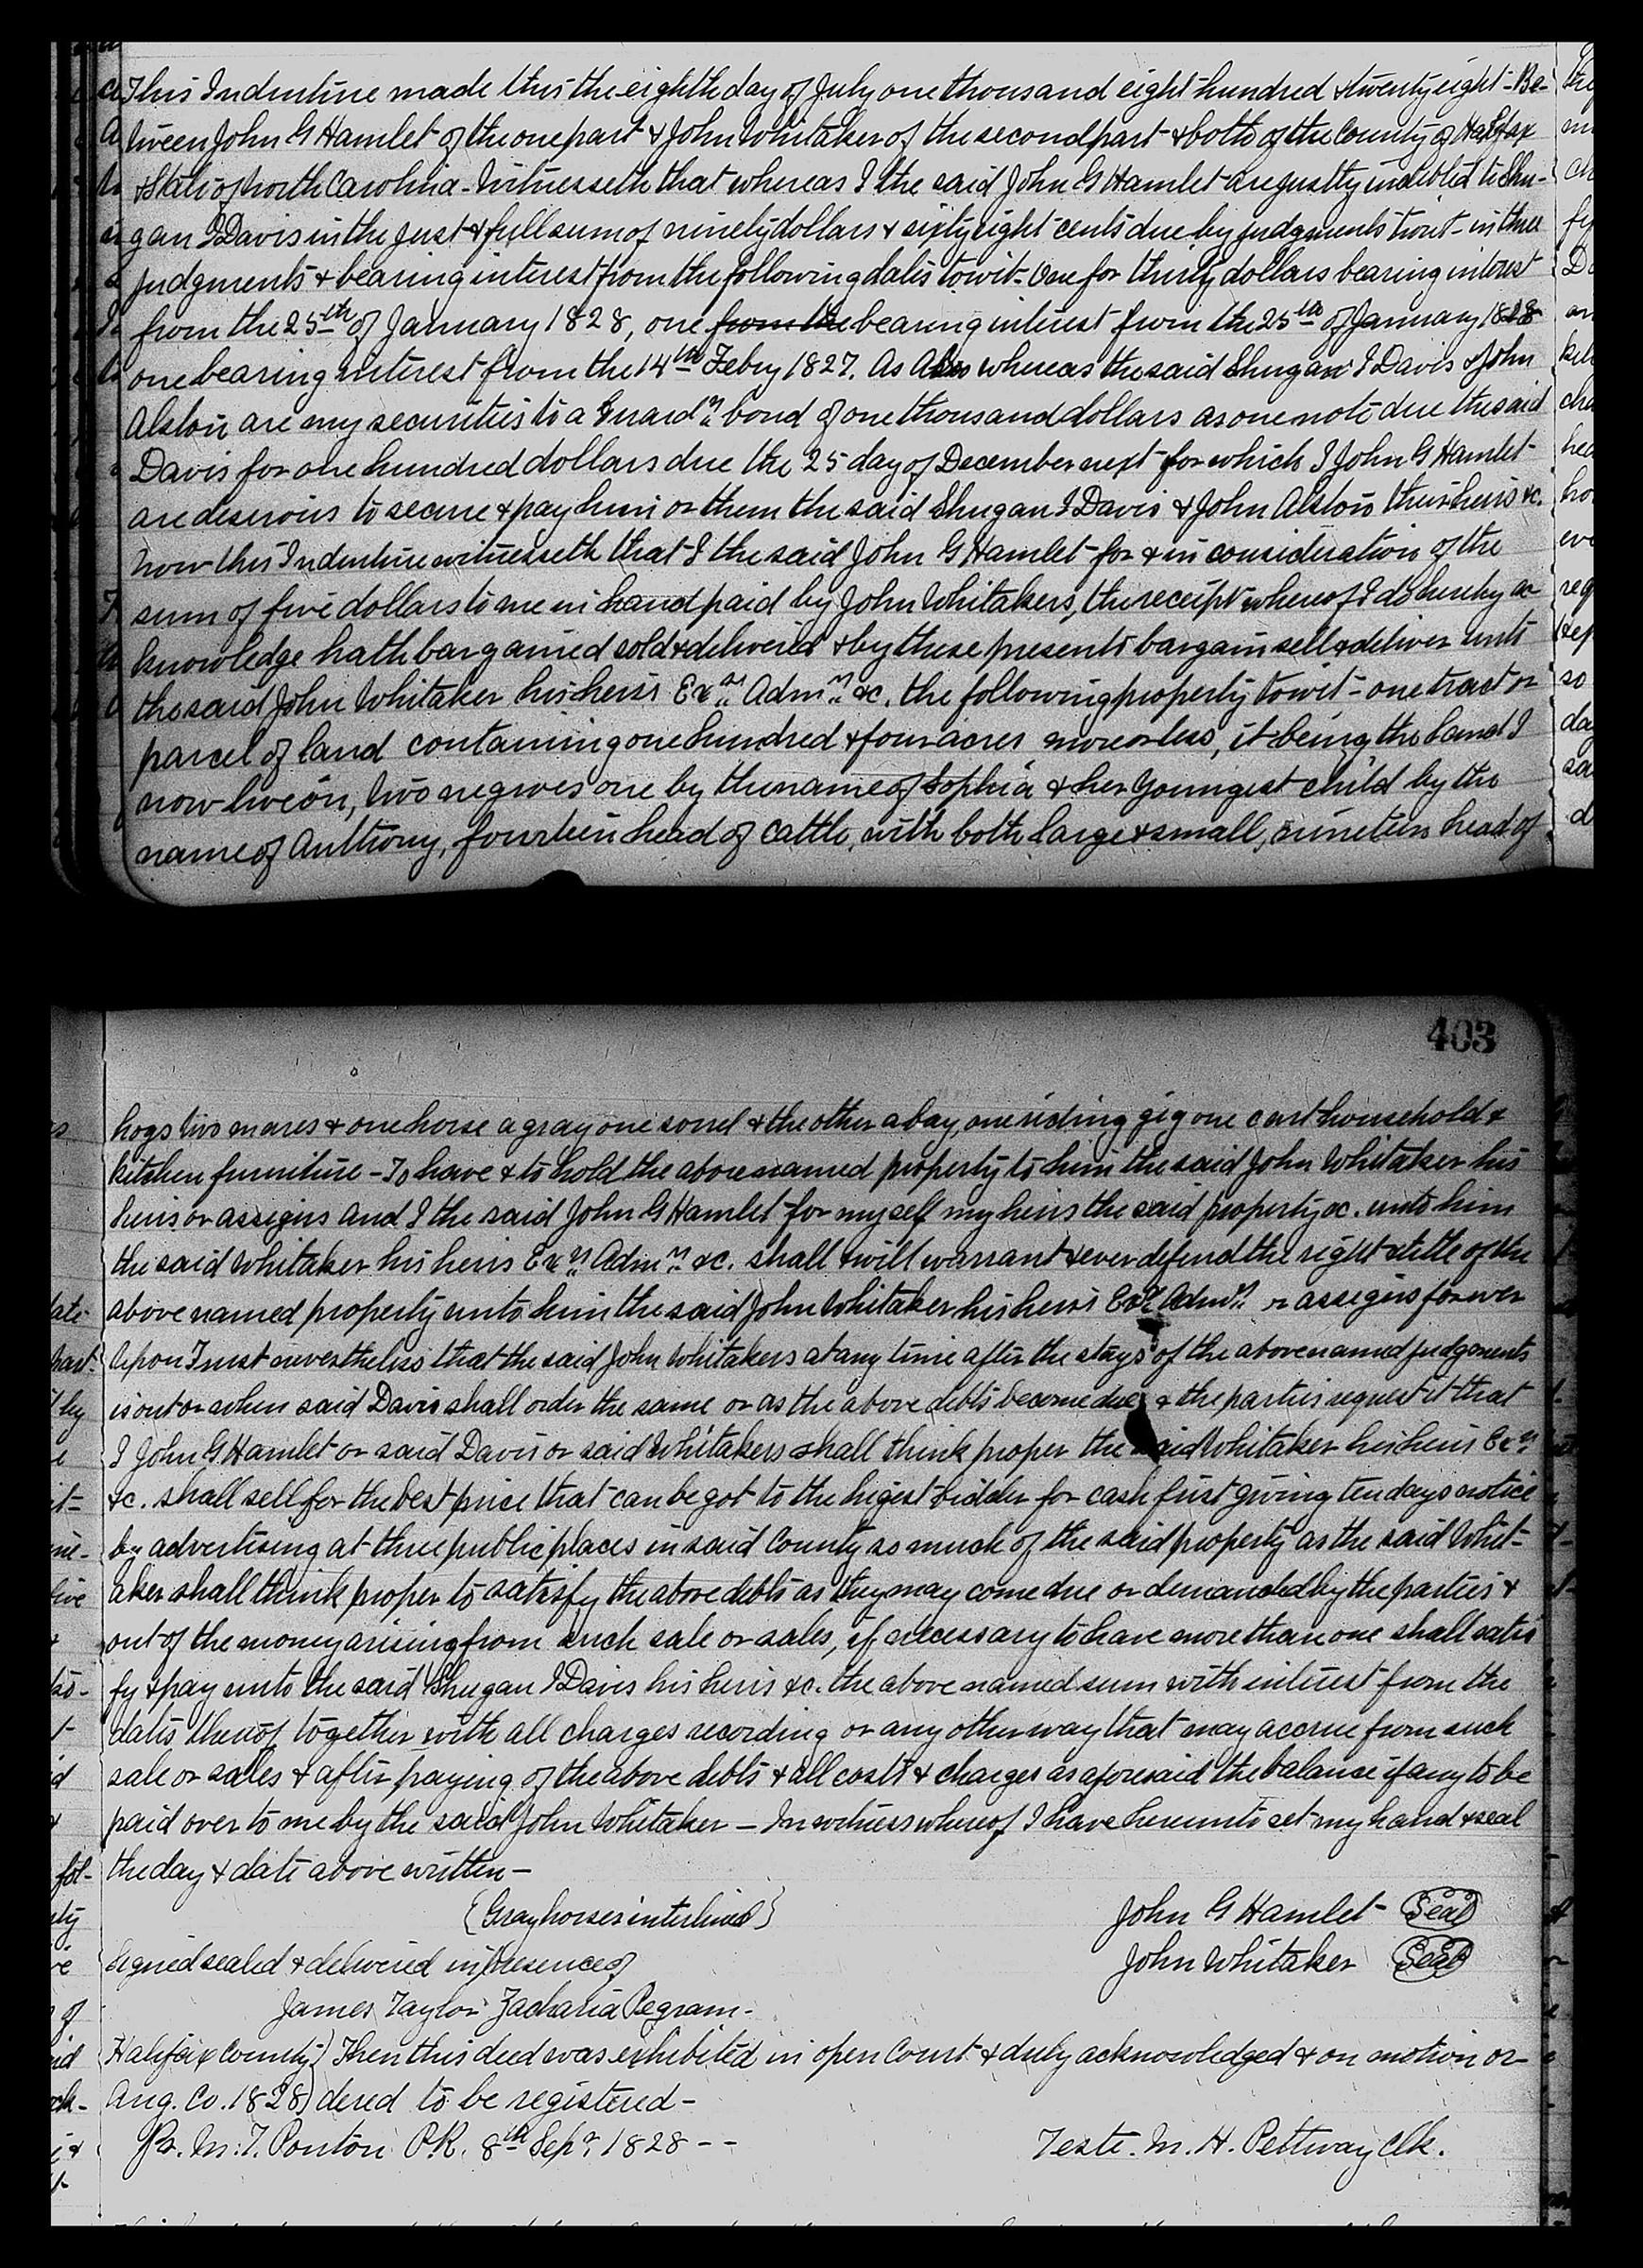 This Indenture made this the eighth day of July one thousand eight hundred & twenty eight - Be-
tween John G Hamlet of the one part & John Whitaker of the second part & both of the County of Halifax
& State of North Carolina - Witnesseth that whereas I the said John G Hamlet are justly indebted to Shu-
gan I Davis in the just & full sum of ninety dollars & sixty eight cents due by judgments towit - in three
judgments & bearing interest from the following dates towit - One for thirty dollars bearing interest
from the 25th of January 1828, one from the bearing interest from the 25th of January 1828
one bearing interest from the 14th Febry 1827. As Also whereas the said Shugan I Davis & John
Alston are my securities to a Guardn bond of one thousand dollars as one note due the said
Davis for one hundred dollars due the 25 day of December next for which I John G Hamlet
are desirous to secure & pay him or them the said Shugan I Davis & John Alston their heirs &c.
Now this Indenture witnesseth that I the said John G Hamlet for & in consideration of the
sum of five dollars to me in hand paid by John Whitakers, the receipt whereof I do hereby ac
knowledge hath bargained sold & delivered & by these presents bargain sell & deliver unto
the said John Whitaker his heirs Exrs Admrs &c. the following property towit - one tract or
parcel of land containing one hundred & four acres more or less, it being the land I
now live on, two negroes one by the name of Sophia & her youngest child by the
name of Anthony, fourteen head of cattle, with both large & small, nineteen head of
403
hogs two mares & one horse a gray one sorrel & the other a bay, one riding gig one cart household &
kitchen furniture - To have & to hold the above named property to him the said John Whitaker his
heirs or assigns And I the said John G Hamlet for myself my heirs the said property &c. unto him
the said Whitaker his heirs Exrs Admrs &c. shall & will warrant & ever defend the right & title of the
above named property unto him the said John Whitaker his heirs Exrs Admrs or assigns forever
Upon Trust nevertheless that the said John Whitakers at any time after the stays of the above named judgments
is out or when said Davis shall order the same or as the above debts become due & the parties request it that
I John G Hamlet or said Davis or said Whitakers shall think proper the said Whitaker his heirs Exrs
&c. shall sell for the best price that can be got to the higest bidder for cash first giving ten days notice
by advertising at three public places in said County so much of the said property as the said Whit-
aker shall think proper to satisfy the above debts as they may come due or demanded by the parties &
out of the money arising from such sale or sales, if necessary to have more than one shall satis
fy & pay unto the said Shugan I Davis his heirs &c. the above named sum with interest from the
dates thereof together with all charges recording or any other way that may accrue from such
sale or sales & after paying of the above debts & all costs & charges as aforesaid the balance if any to be
paid over to me by the said John Whitaker - In witness whereof I have hereunto set my hand & seal
the day & date above written -
{Gray horses interlined} John G Hamlet - Seal
John Whitaker Seal
Signed sealed & delivered in presence of
James Taylor Zacharia Pegram -
Halifax County} Then this deed was exhibited in open Court & duly acknowledged & on motion or-
Aug. Co. 1828} dered to be registered -
Pr. M: T. Ponton P.R. 8th Sepr 1828 - - Teste. M. H. Pettway Clk.